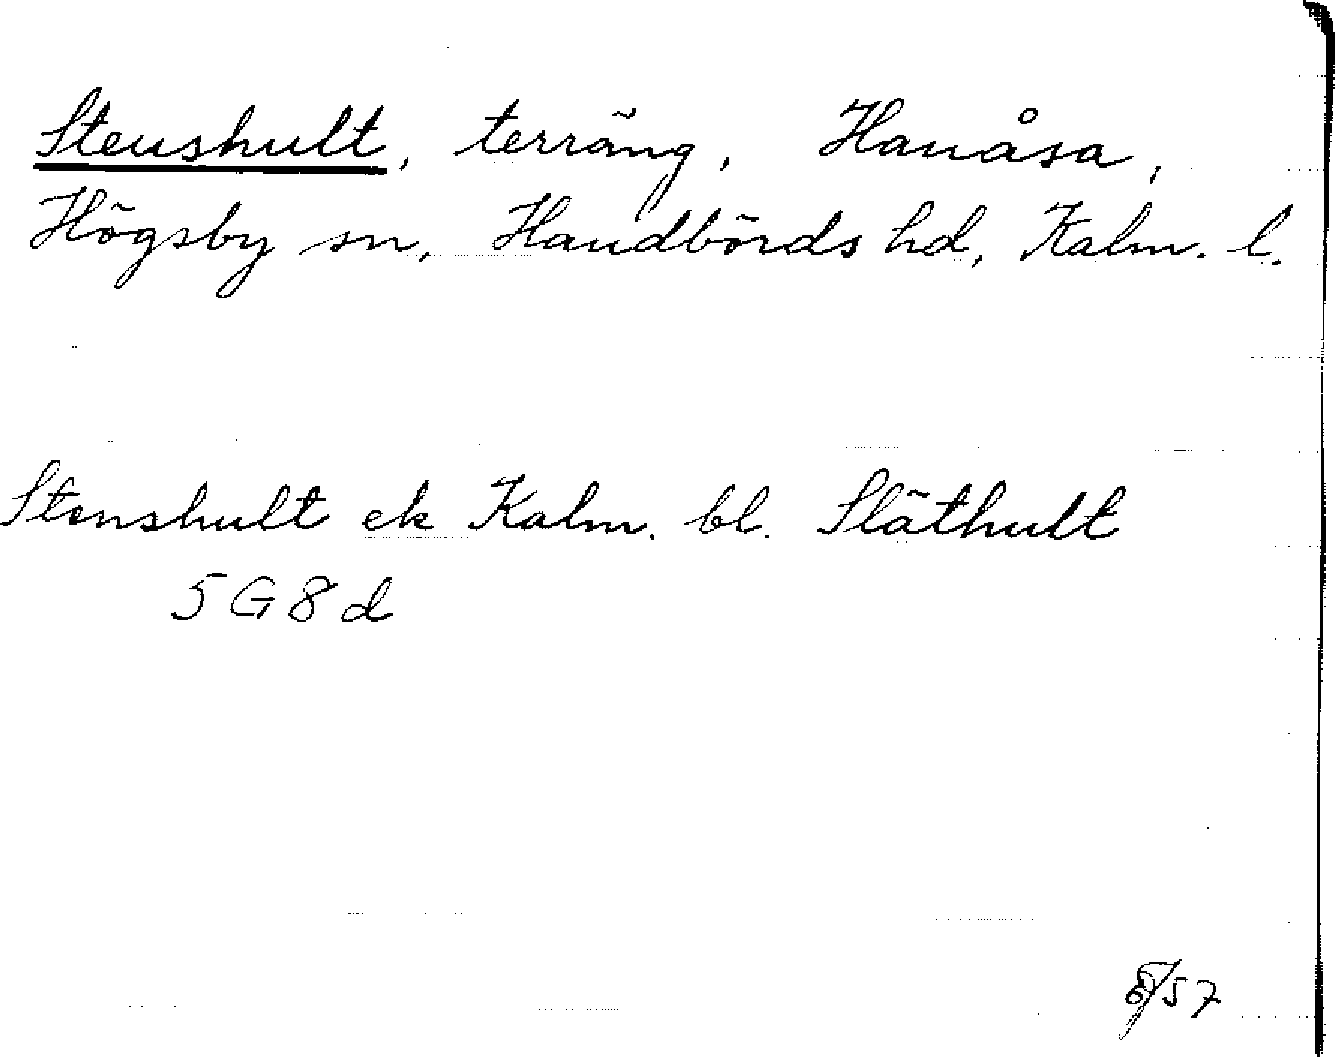 Stenshult, terräng, Hanåsa,
Högsby sn, Handbörds hd, Kalm. l.
Stenshult ek Kalm. bl. Släthult
5G8d
57